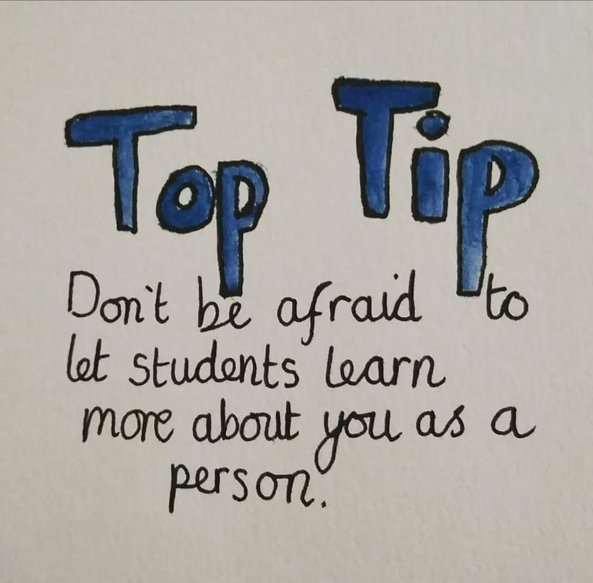 Top Tip
Don't be afraid to
let students learn
more about you as a
person.